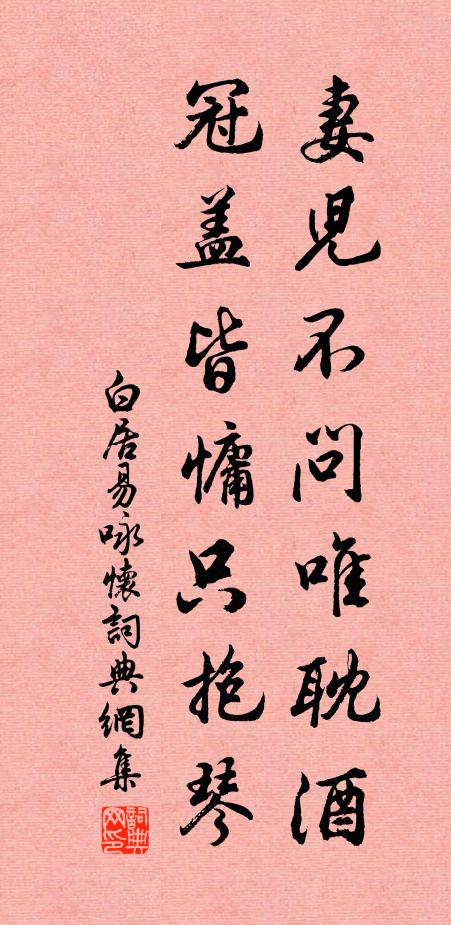 妻児不問唯耽酒
冠盖皆慵只抱琴
白居易咏懷詞典網集
詞典网印